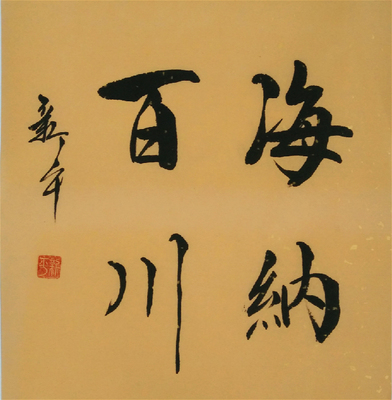 海納
百川
新午